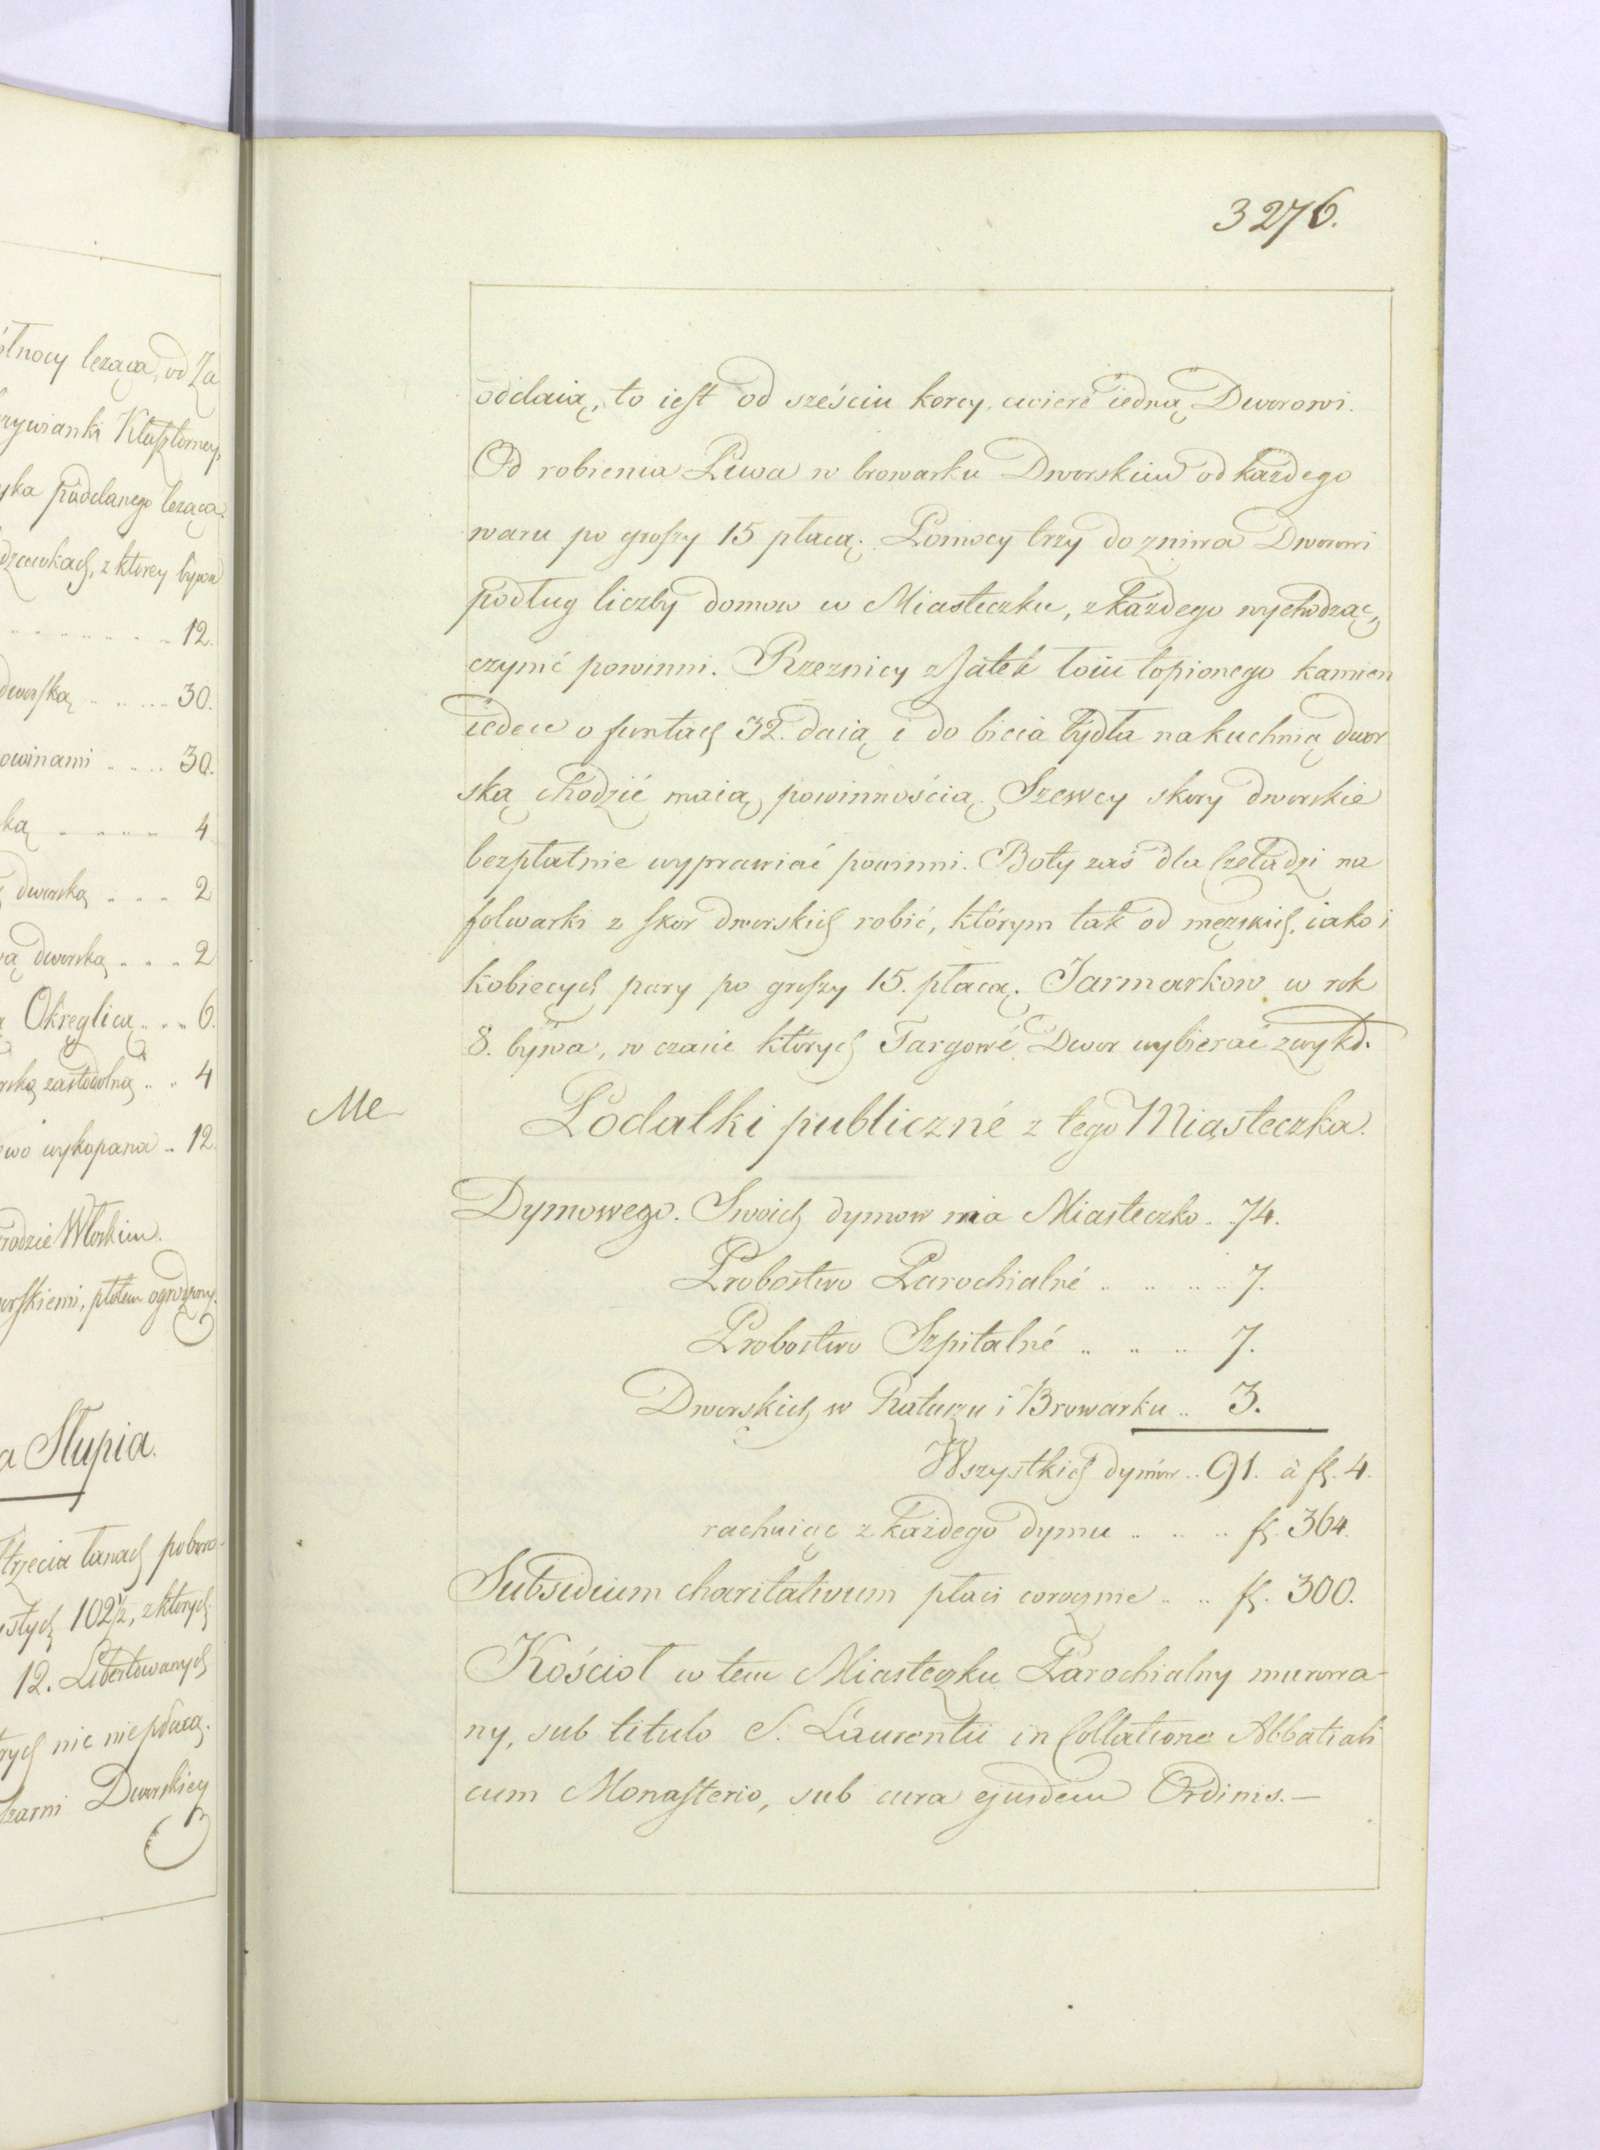 ółnocy lezącą, od Za
krzywianki Klasztorney,
yka puddanego lezącą
dzcowkach, z ktorey bywa
12.
dworską .. .. ... 30.
owinami .. .. 30.
ką .. .. .. 4
dworską .. .. 2
wą dworską .. .. 2
ą Okręglicą .. .. 6.
rską zastodolną .. .. 4
ewo wykopana .. 12.
rodzie Włoskim.
orskiemi, płotem ogrodzony.
a Słupia.
trzecia łanach poboro-
istych 102½, z ktorych
12. Libertowanych
trych nic nie płacą.
karni Dworskiey
3276.
oddaią, to iest od sześciu korcy, cwierć iedną Dworowi.
Od robienia Piwa w browarku Dworskim od każdego
waru po groszy 15 płacą. Pomocy trzy do zniwa Dworowi
podług liczby domow w Miasteczku, z każdego wychodząc,
czynić powinni. Rzeznicy z Jatek łoiu topionego kamien
ieden o funtach 32. daią i do bicia bydła na kuchnią dwor
ską chodzić maią powinnością. Szewcy skory dworskie
bezpłatnie wyprawiać powinni. Boty zaś dla Czeladzi na
folwarki z skor dworskich robić, którym tak od męzkich, iako i
kobiecych pary po groszy 15. płacą. Jarmarkow w rok
8. bywa, w czasie których Targowé Dwor wybierać zwykł.
Me
Podatki publiczné z tego Miasteczka.
Dymowego. Swoich dymow ma Miasteczko .. 74.
Probostwo Parochialné .. .. .. .. 7.
Probostwo Szpitalné .. .. .. 7.
Dworskich w Ratuszu i Browarku .. 3.
Wszystkich dymów .. 91. à fl. 4.
rachuiąc z każdego dymu .. .. .. fl. 364.
Subsidium charitativum płaci corocznie .. .. fl. 300.
Kościoł w tem Miasteczku Parochialny murowa-
ny, sub titulo S. Laurentii in Collatione Abbatiali
cum Monasterio, sub cura ejusdem Ordinis.—